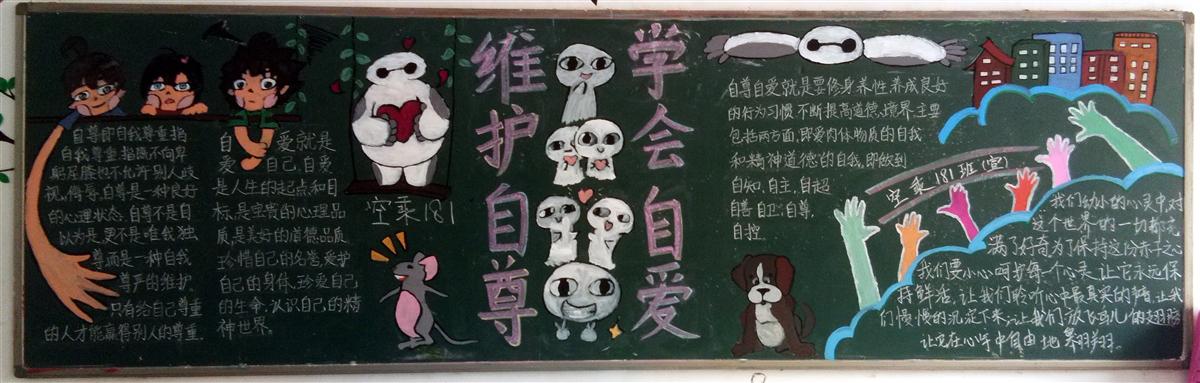 自尊即自我尊重指
自我尊重,指既不向卑
躬屈膝也不允许别人歧
视、侮辱,自尊是一种良好
的心理状态,自尊不是自
以为是,更不是唯我独
尊而是一种自我
尊严的维护
只有给自己尊重
的人才能赢得别人的尊重.
自 爱就是
爱 自己,自爱
是人生的起点和目
标,是宝贵的心理品
质,是美好的道德品质
珍惜自己的名誉爱护
自己的身体,珍爱自己
的生命,认识自己的精
神世界。
空乘181
维护自尊
学会自爱
自尊自爱就是要修身养性,养成良好
的行为习惯,不断提高道德境界,主要
包括两方面,即爱肉体物质的自我
和精神道德的自我,即做到
自知,自主,自超
自善,自卫,自尊,
自控.
空乘181班(宣)
我们幼小的心灵中对
这个世界的一切都充
满了好奇为了保持这份赤子之心
我们要小心呵护每一个心灵,让它永远保
持鲜活,让我们聆听心中最真实的声音,让我
们慢慢的沉淀下来,让我们放飞鸟儿的翅膀
让它在心中自由地翱翔.